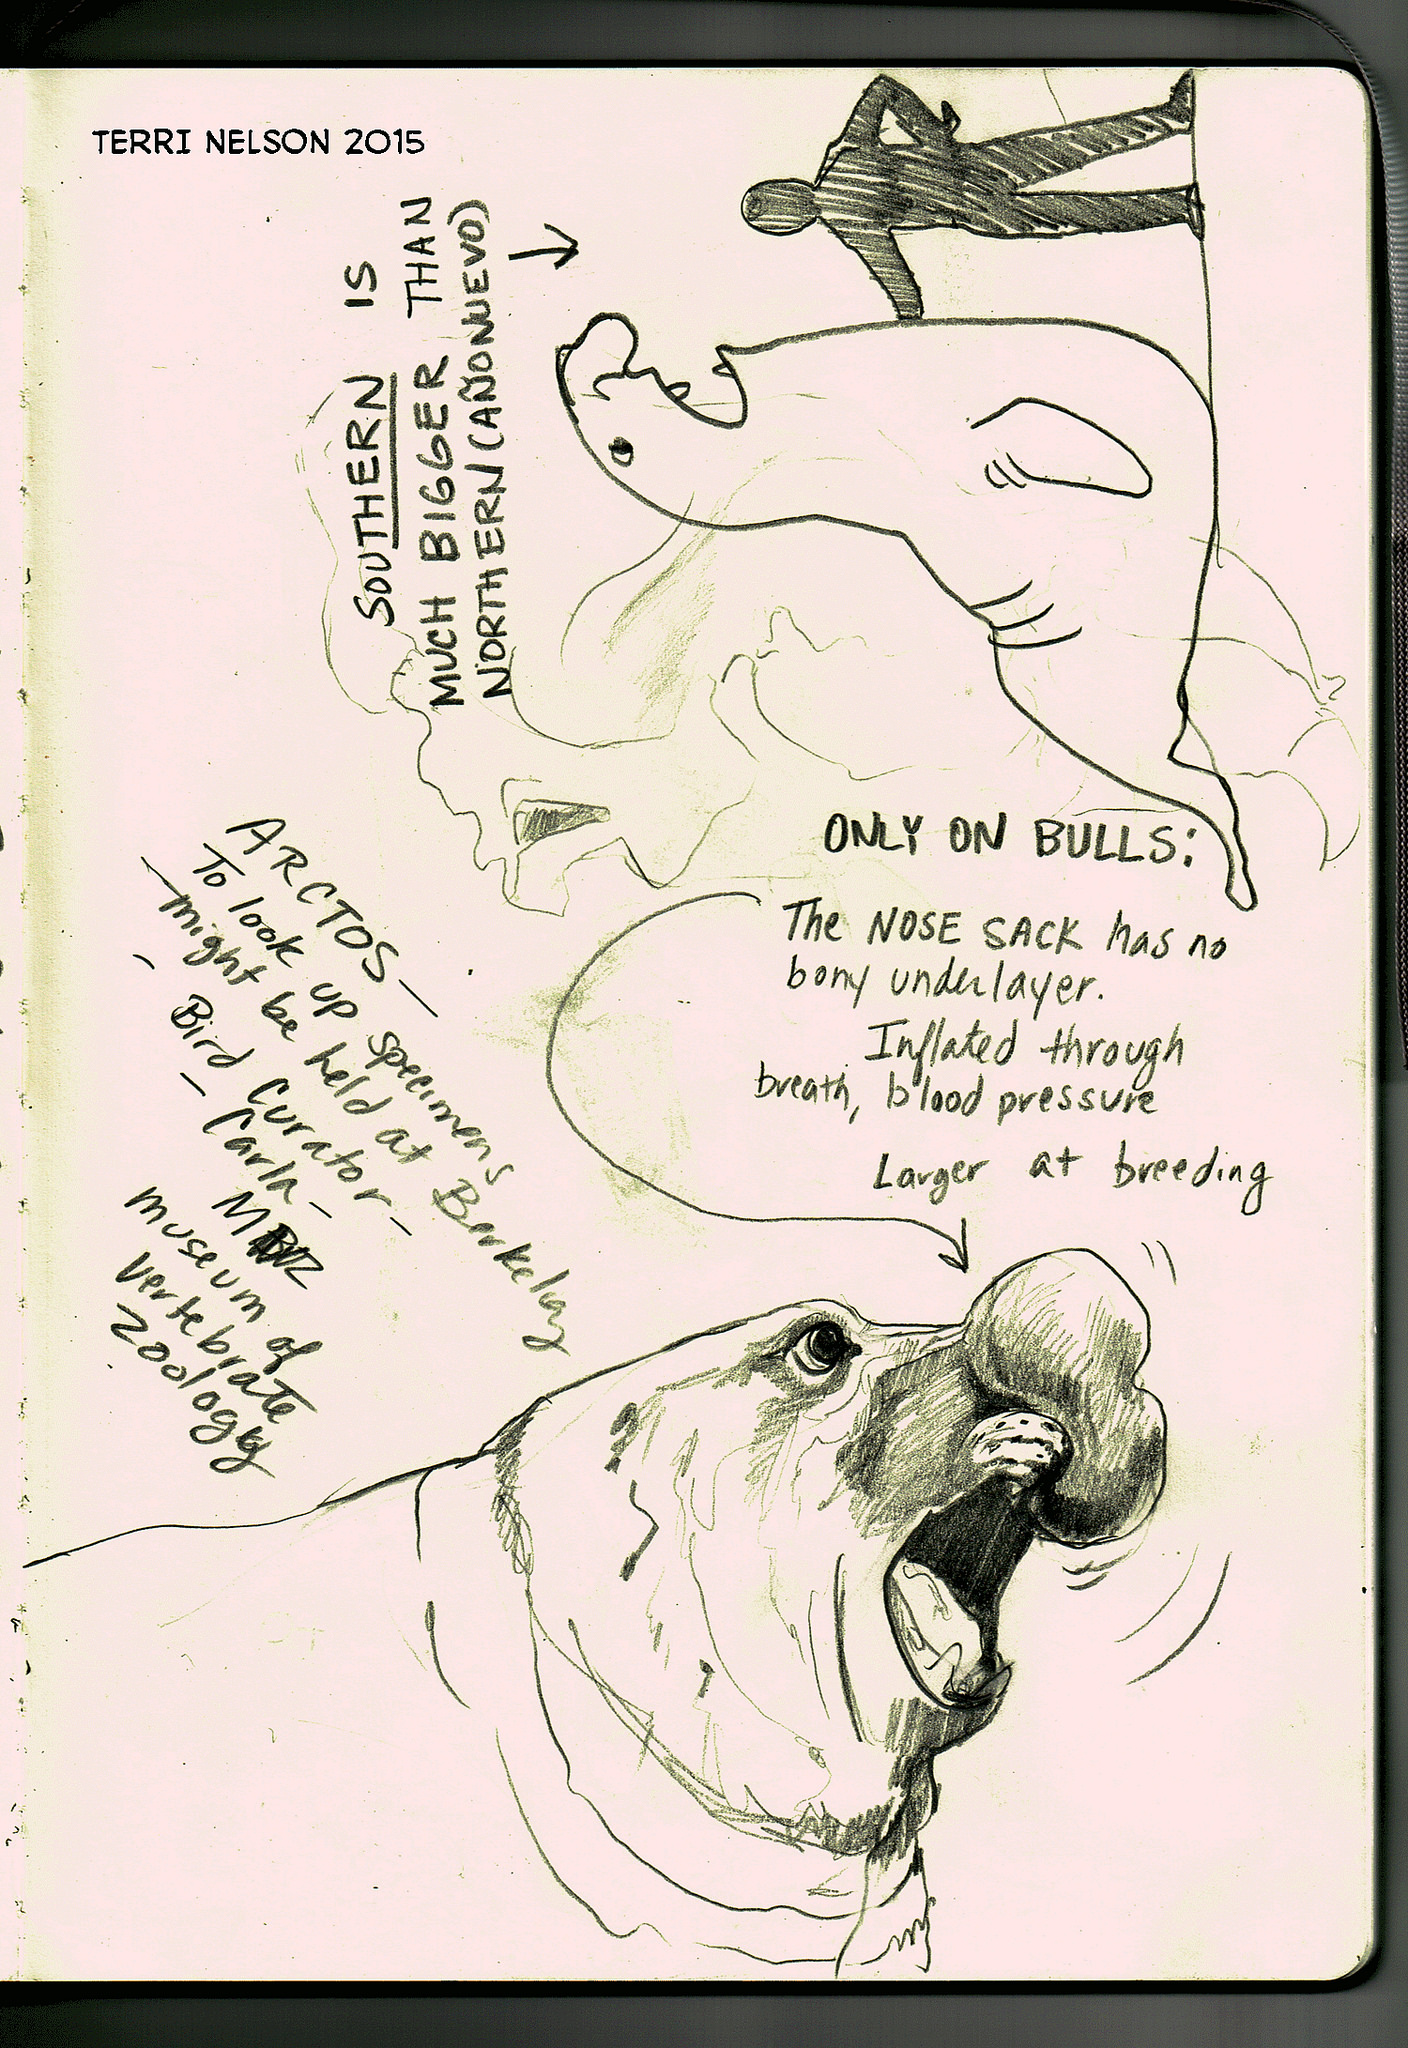 TERRI NELSON 2015
SOUTHERN IS
MUCH BIGGER THAN
NORTHERN (AÑONUEVO)
ONLY ON BULLS:
The NOSE SACK has no
bony underlayer.
Inflated through
breath, blood pressure
Larger at breeding
ARCTOS –
To look up specimens
– might be held at Berkeley
– Bird Curator –
– Carla –
museum of
vertebrate
zoology